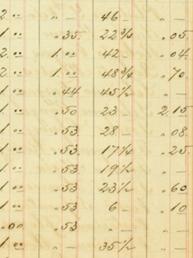 2 " " - 46 -
1 " " .35 22¾ " .05
2 " " 1.00 42 - " .04
2 " " 1.00 48¾ " .70
1 " " .44 45½ " -
1 " " .50 23 2.15
1 " " .53 28 - " .08
1 " " .53 17¾ " .25
1 " " .53 19½ " -
1 " " .53 23½ " .60
1 " " .53 6 - " .10
.00 .53 " - " -
1 " " 35½ " -